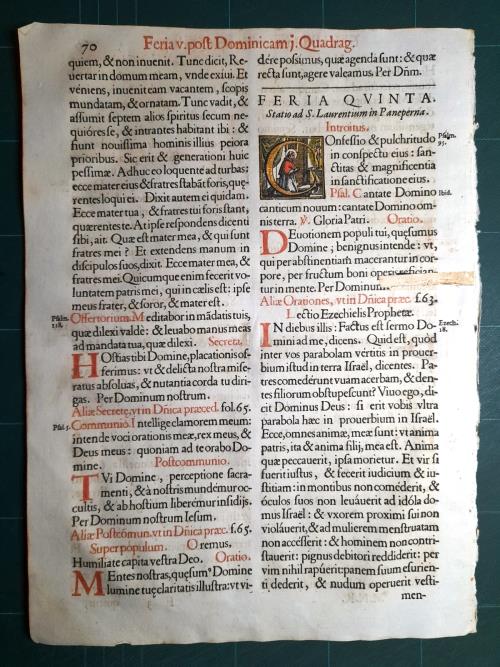 70
Feria v. post Dominicam j. Quadrag.
quiem, & non inuenit. Tunc dicit, Re-
uertar in domum meam, vnde exiui. Et
véniens, inuenit eam vacantem, scopis
mundatam, & ornatam. Tunc vadit, &
assumit septem alios spiritus secum ne-
quióres se, & intrantes habitant ibi: &
fiunt nouissima hominis illius peiora
prioribus. Sic erit & generationi huic
pessimæ. Adhuc eo loquente ad turbas:
ecce mater eius & fratres stabāt foris, quę-
rentes loqui ei. Dixit autem ei quidam.
Ecce mater tua, & fratres tui foris stant,
quærentes te. At ipse respondens dicenti
sibi, ait. Quæ est mater mea, & qui sunt
fratres mei? Et extendens manum in
discipulos suos, dixit. Ecce mater mea, &
fratres mei. Quicumque enim fecerit vo-
luntatem patris mei, qui in cælis est: ipse
meus frater, & soror, & mater est.
Psalm. 118.
Offertorium. Meditabor in mādatis tuis,
quæ dilexi valdè: & leuabo manus meas
ad mandata tua, quæ dilexi. Secreta.
HOstias tibi Domine, placationis of-
ferimus: vt & delicta nostra mise-
ratus absoluas, & nutantia corda tu diri-
gas. Per Dominum nostrum.
Aliæ Secretę, vt in Dñica præced. fol. 65.
Psal. 5.
Communio. Intellige clamorem meum:
intende voci orationis meæ, rex meus, &
Deus meus: quoniam ad te orabo Do-
mine. Postcommunio.
TVi Domine, perceptione sacra-
menti, & à nostris mundémur oc-
cultis, & ab hostium liberémur insidijs.
Per Dominum nostrum Iesum.
Aliæ Postcōmun. vt in Dñica præc. f. 65.
Super populum. Oremus.
Humiliate capita vestra Deo. Oratio.
MEntes nostras, quęsumꝰ Domine
lumine tuę claritatis illustra: vt vi-
dére possimus, quæ agenda sunt: & quæ
recta sunt, agere valeamus. Per Dñm.
FERIA QVINTA.
Statio ad S. Laurentium in Paneperna.
Introitus.
COnfessio & pulchritudo
Psalm. 95.
in conspectu eius: san-
ctitas & magnificentia
in sanctificatione eius.
Psal. Cantate Domino
Ibid.
canticum nouum: cantate Domino om-
nis terra. ℣. Gloria Patri. Oratio.
DEuotionem populi tui, quęsumus
Domine, benignus intende: vt,
qui per abstinentiā macerantur in cor-
pore, per fructum boni operis reficían-
tur in mente. Per Dominum
Aliæ Orationes, vt in Dñica præc. f. 63.
Lectio Ezechielis Prophetæ.
Ezech. 18.
IN diebus illis: Factus est sermo Do-
mini ad me, dicens. Quid est, quòd
inter vos parabolam vértitis in prouer-
bium istud in terra Israël, dicentes. Pa-
tres comedérunt vuam acerbam, & den-
tes filiorum obstupescunt? Viuo ego, di-
cit Dominus Deus: si erit vobis vltra
parabola hæc in prouerbium in Israël.
Ecce, omnes animæ, meæ sunt: vt anima
patris, ita & anima filij, mea est. Anima
quæ peccauerit, ipsa morietur. Et vir si
fuerit iustus, & fecerit iudicium & iu-
stitiam: in montibus non coméderit, &
óculos suos non leuáuerit ad idóla do-
mus Israël: & vxorem proximi sui non
violáuerit, & ad mulierem menstruatam
non accésserit: & hominem non contri-
stauerit: pignus debitori reddiderit: per
vim nihil rapúerit: panem suum esurien-
ti déderit, & nudum operuerit vesti-
men-